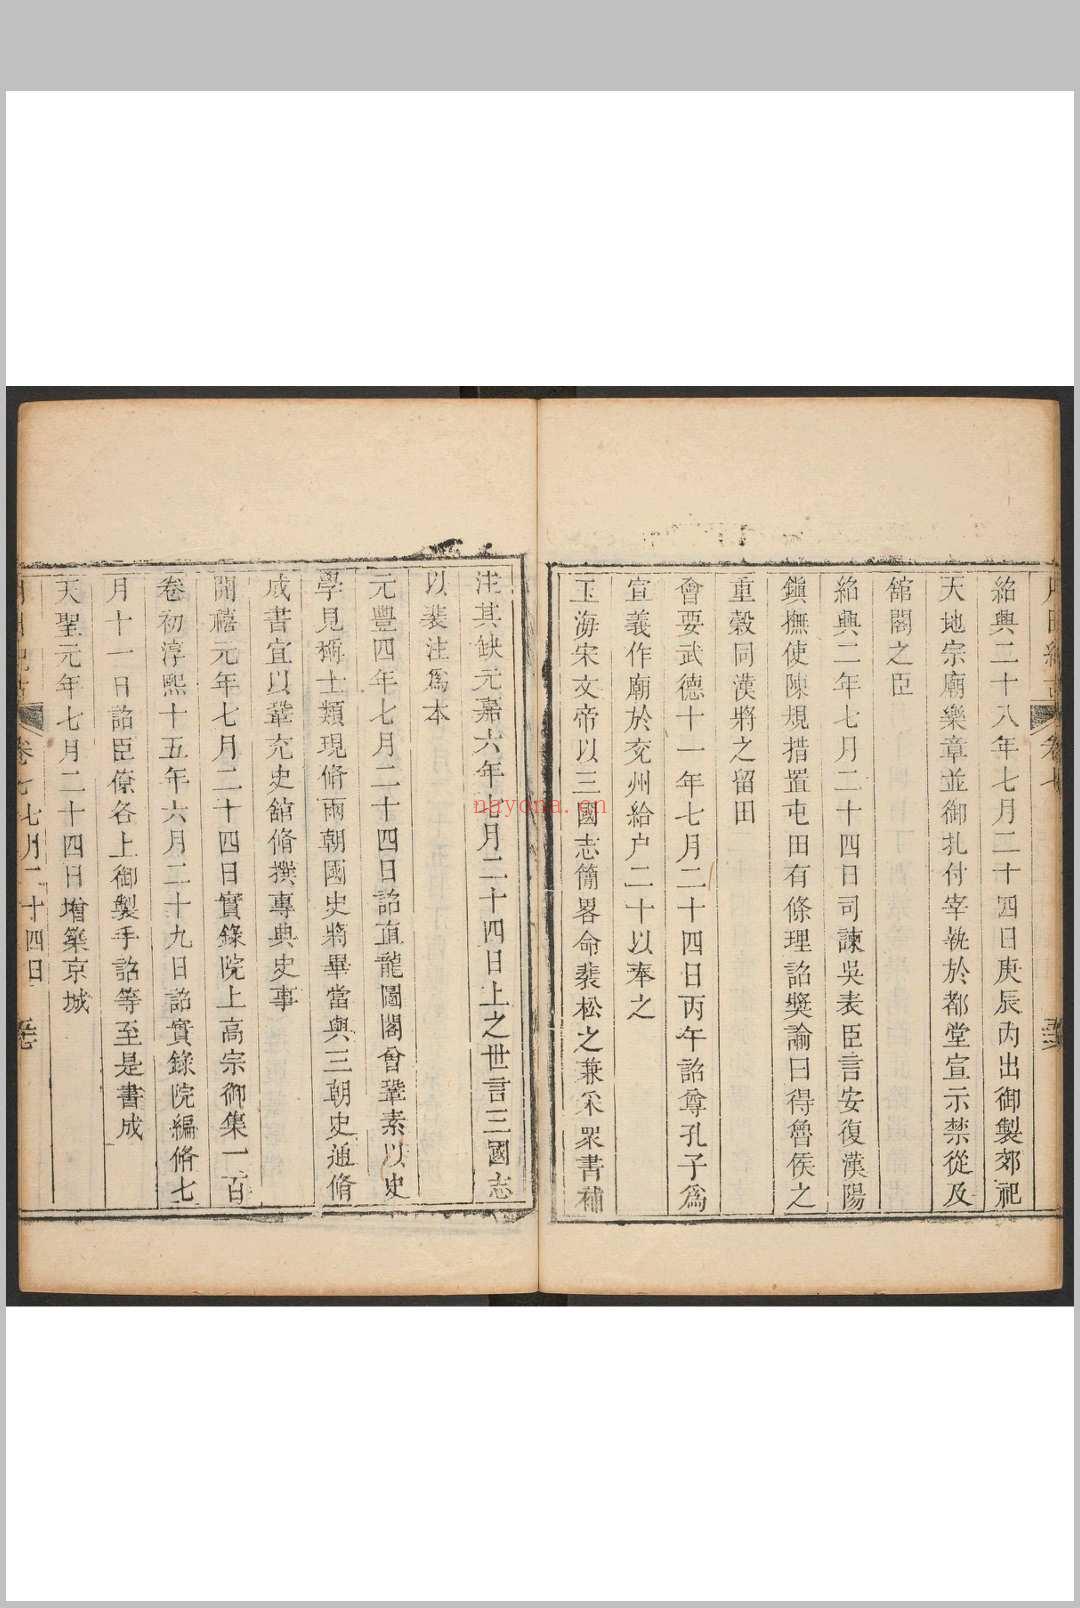 月日紀古
卷七
紹興二十八年七月二十四日庚辰內出御製郊祀
天地宗廟樂章並御札付宰執於都堂宣示禁從及
舘閣之臣
紹興二年七月二十四日司諫吳表臣言安復漢陽
鎭撫使陳規措置屯田有條理詔奬諭曰得魯侯之
重穀同漢將之留田
會要武德十一年七月二十四日丙午詔尊孔子爲
宣義作廟於兗州給户二十以奉之
玉海宋文帝以三國志簡畧命裴松之兼采眾書補
注其缺元嘉六年七月二十四日上之世言三國志
以裴注爲本
元豐四年七月二十四日詔直龍圖閣曾鞏素以史
學見稱士類現脩兩朝國史將畢當與三朝史通脩
成書宜以鞏充史舘脩撰專典史事
開禧元年七月二十四日實錄院上高宗御集一百
卷初淳熙十五年六月二十九日詔實錄院編脩七
月十一日詔臣僚各上御製手詔等至是書成
天聖元年七月二十四日增築京城
月日紀古
卷七 七月二十四日
nayona.cn